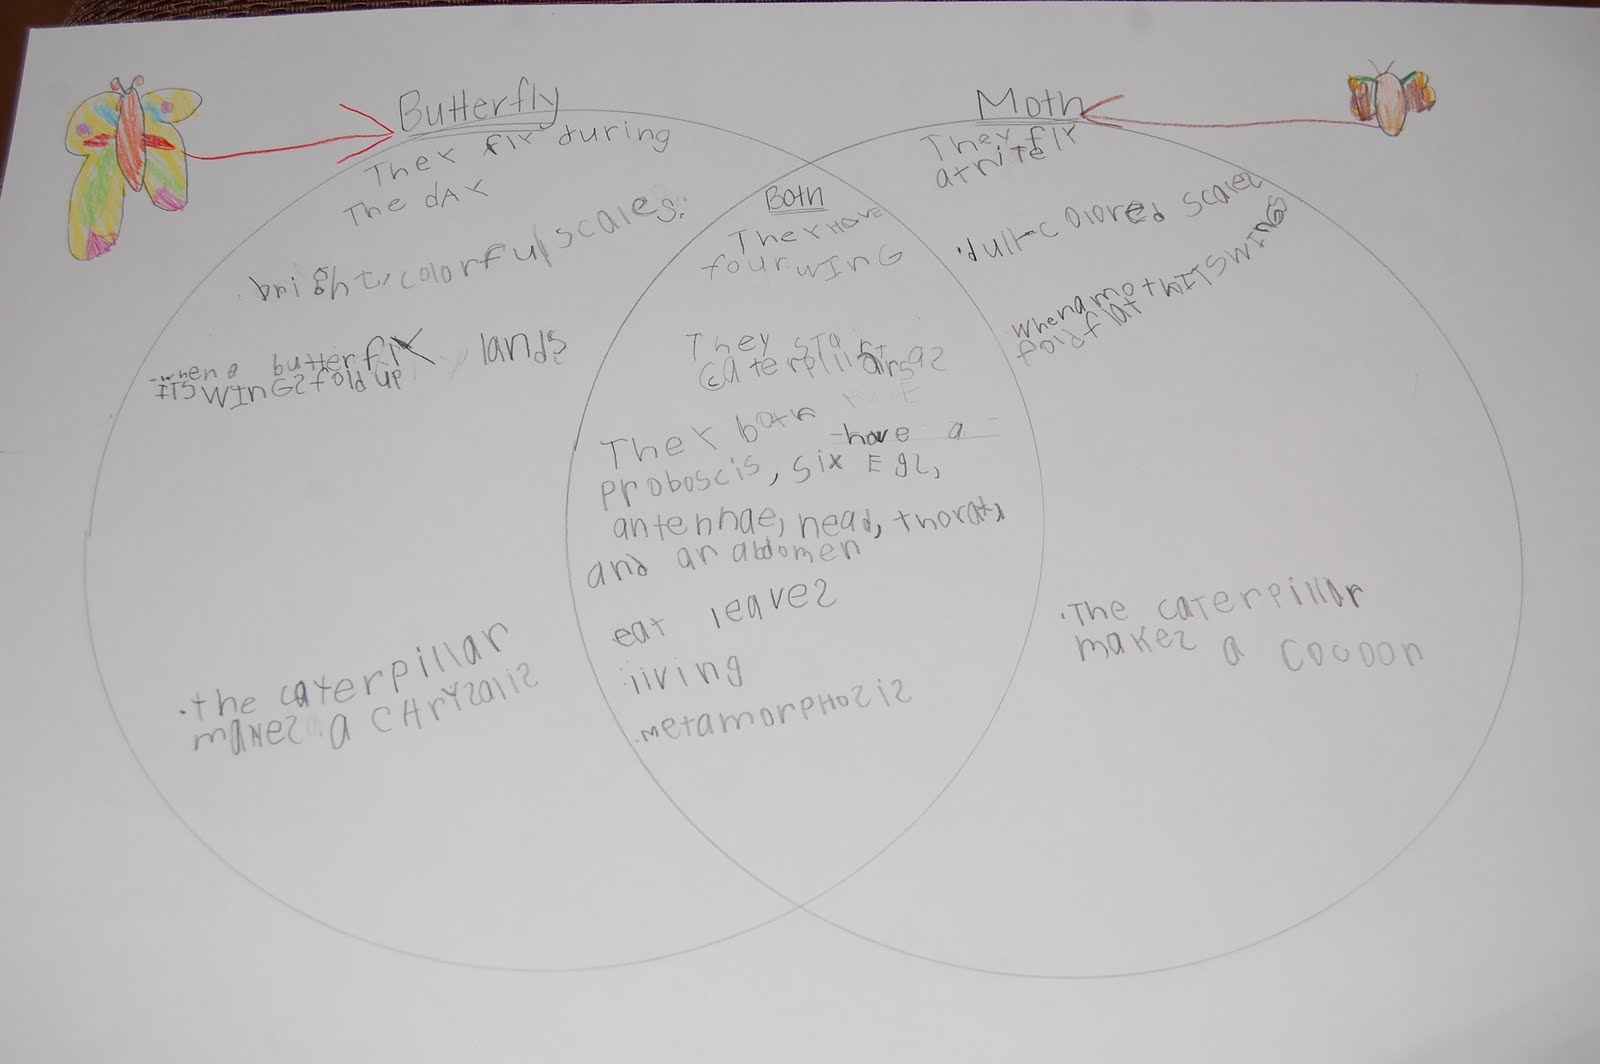 Butterfly
They fly during
The dAy
.bright,colorful scales.
-when a butterfly lands
ITS WInGS fold up
.the caterpillar
makes a CHrYsalis
Both
They HAVE
four wInG
They STart
caterpillars as
They both
have a
proboscis, six
antennae, head, thorats,
and an abdomen
eat leaves
living
.metamorpHosis
Moth
They fly
at nite
.dull-colored scales
when a moth ITS WINGS
fold flat
.The caterpillar
makes a cocoon